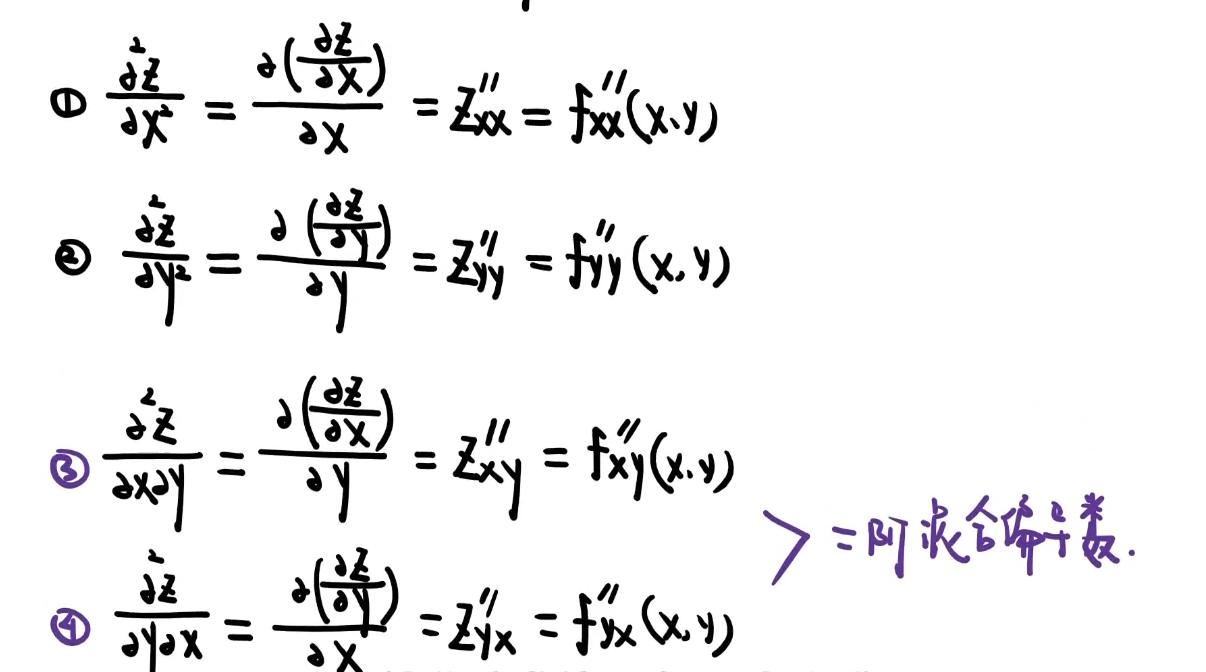 ① ∂²z/∂x² = ∂(∂z/∂x)/∂x = z''xx = f''xx(x,y)
② ∂²z/∂y² = ∂(∂z/∂y)/∂y = z''yy = f''yy(x,y)
③ ∂²z/∂x∂y = ∂(∂z/∂x)/∂y = z''xy = f''xy(x,y)
> 二阶混合偏导数.
④ ∂²z/∂y∂x = ∂(∂z/∂y)/∂x = z''yx = f''yx(x,y)